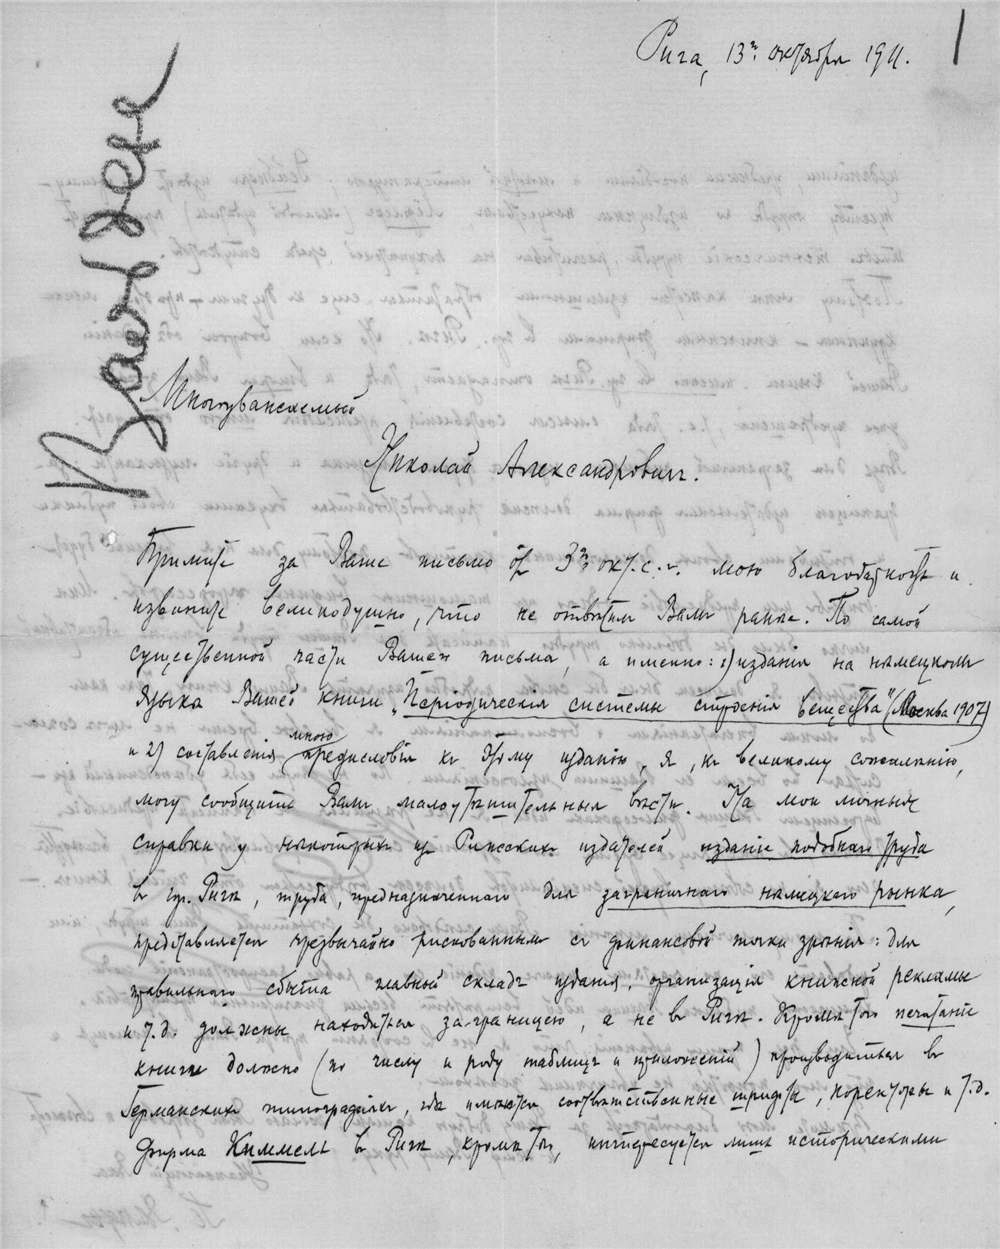 Рига, 13го октября 1911.
1
Вальден
Многоуважаемый
Николай Александрович.
Примите за Ваше письмо от 3го окт. с. г. мою благодарность и
извините великодушно, что не ответил Вам ранее. По самой
существенной части Вашего письма, а именно: 1) изданія на немецком
языке Вашей книги „Періодическія системы строенія вещества" (Москва 1907)
и 2) составленія мною предисловія к этому изданію, я, к великому сожаленію,
могу сообщить Вам малоутешительныя вести. На мои личныя
справки у некоторых из Рижских издателей изданіе подобнаго труда
в гор. Риге, труда, предназначеннаго для заграничнаго немецкаго рынка,
представляется чрезвычайно рискованным с финансовой точки зренія: для
правильнаго сбыта главный склад изданія, организація книжной рекламы
и т.д. должны находиться заграницею, а не в Риге. Кроме того печатаніе
книги должно (по числу и роду таблиц и приложеній) производиться в
Германских типографіях, где имеются соответственные шрифты, корректоры и т.д.
Фирма Киммель в Риге, кроме того, интересуется лишь историческими